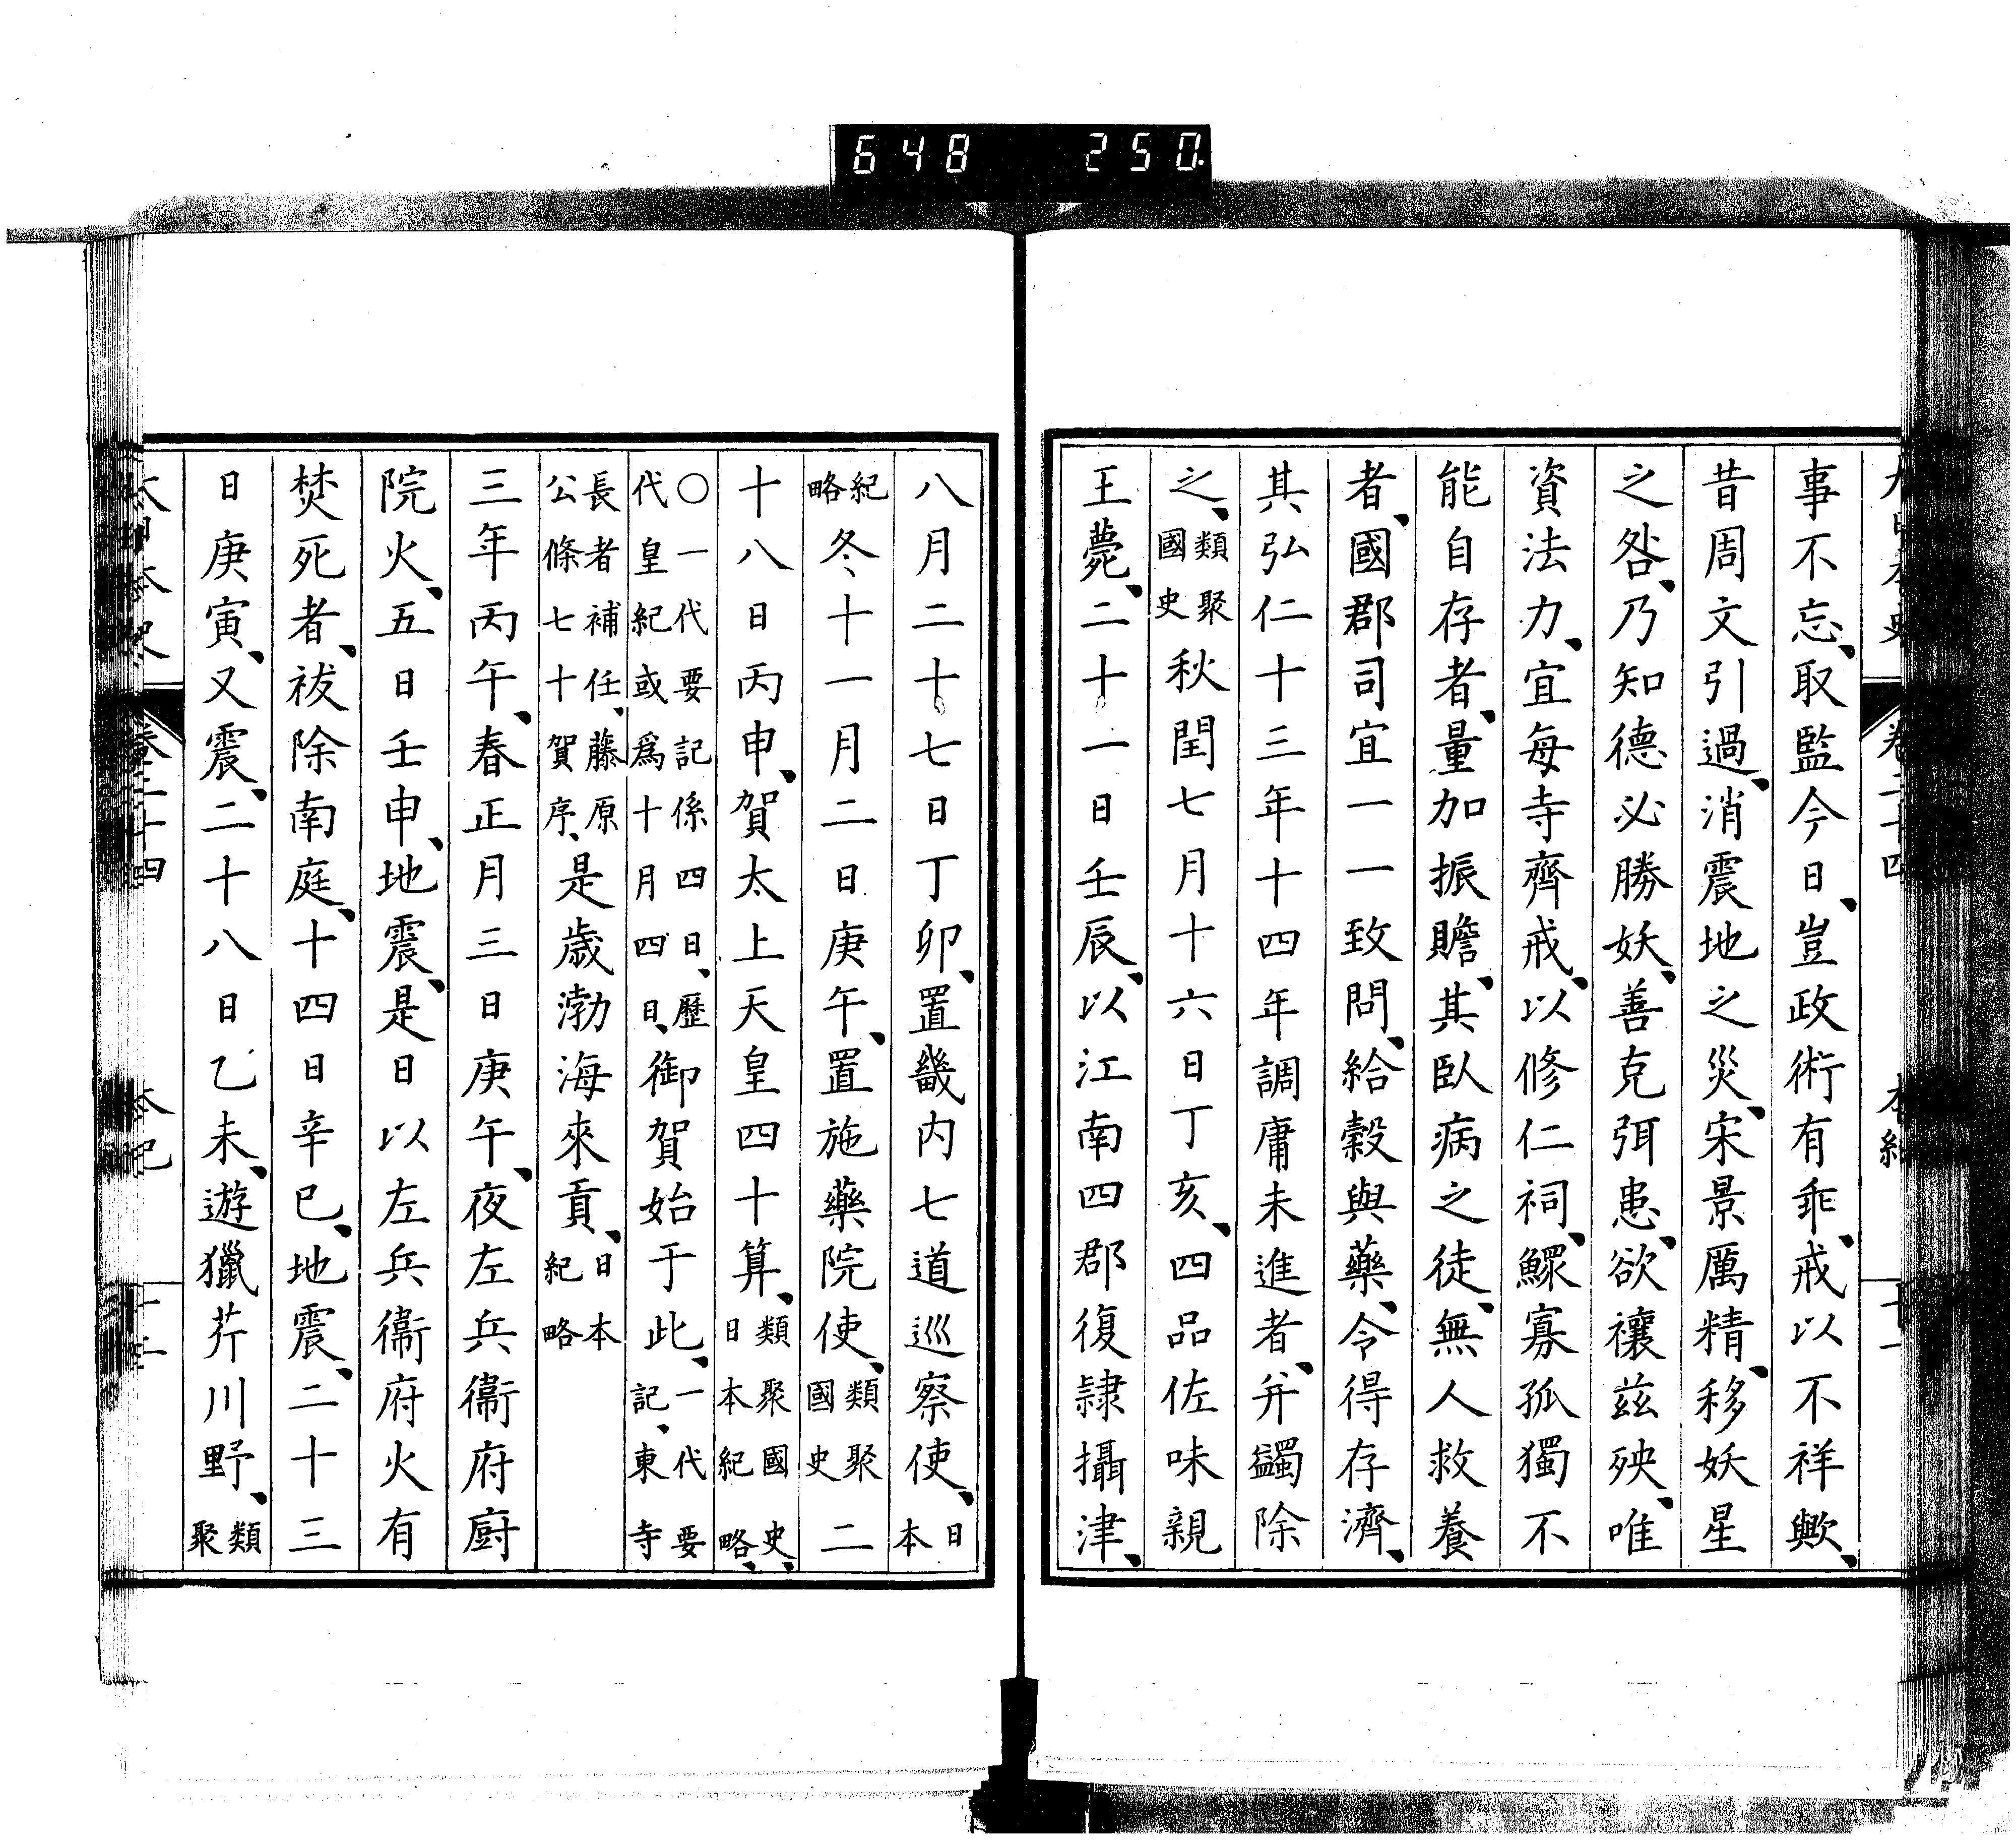 648 250
大日本史 卷二十四 本紀 十一
事不忘、取監今日、豈政術有乖、戒以不祥歟、
昔周文引過、消震地之災、宋景厲精、移妖星
之咎、乃知德必勝妖、善克弭患、欲禳茲殃、唯
資法力、宜每寺齊戒、以修仁祠、鰥寡孤獨不
能自存者、量加振贍、其臥病之徒、無人救養
者、國郡司宜一一致問、給穀與藥、令得存濟、
其弘仁十三年十四年調庸未進者、弁蠲除
之、類聚國史秋閏七月十六日丁亥、四品佐味親
王薨、二十一日壬辰、以江南四郡復隷攝津、
八月二十七日丁卯、置畿内七道巡察使、日本
紀略冬十一月二日庚午、置施藥院使、類聚國史二
十八日丙申、賀太上天皇四十算、類聚國史、日本紀略、
〇一代要記係四日、歷代皇紀或爲十月四日、御賀始于此、一代要記、東寺
長者補任、藤原公條七十賀序、是歲渤海來貢、日本紀略
三年丙午、春正月三日庚午、夜左兵衞府廚
院火、五日壬申、地震、是日以左兵衞府火有
焚死者、祓除南庭、十四日辛巳、地震、二十三
日庚寅、又震、二十八日乙未、遊獵芹川野、類聚
大日本史 卷二十四 本紀